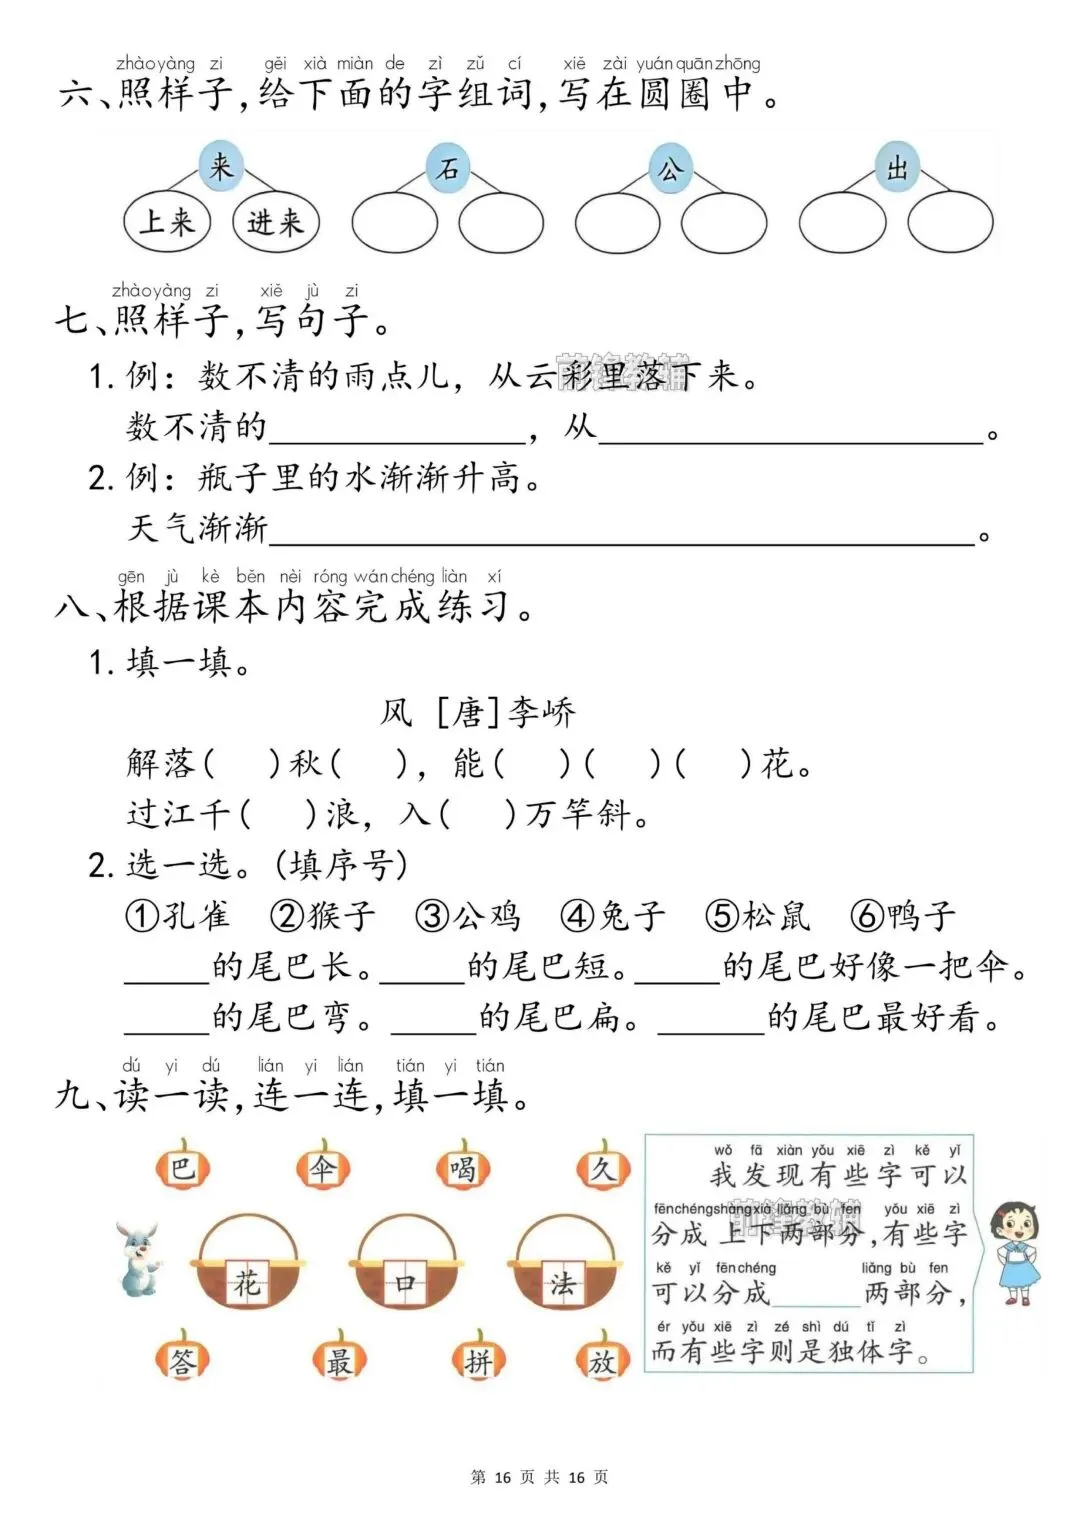 zhàoyàng zi gěi xià miàn de zì zǔ cí xiě zài yuánquānzhōng
六、照样子,给下面的字组词,写在圆圈中。
来 石 公 出
上来 进来
zhàoyàng zi xiě jù zi
七、照样子,写句子。
1. 例：数不清的雨点儿，从云彩里落下来。
前锋教辅
数不清的______________，从____________________。
2. 例：瓶子里的水渐渐升高。
天气渐渐____________________________________。
gēn jù kè běn nèi róng wán chéng liàn xí
八、根据课本内容完成练习。
1. 填一填。
风 [唐]李峤
解落( )秋( )，能( )( )( )花。
过江千( )浪，入( )万竿斜。
2. 选一选。(填序号)
①孔雀 ②猴子 ③公鸡 ④兔子 ⑤松鼠 ⑥鸭子
____的尾巴长。____的尾巴短。____的尾巴好像一把伞。
____的尾巴弯。____的尾巴扁。_____的尾巴最好看。
dú yi dú lián yi lián tián yi tián
九、读一读,连一连,填一填。
巴 伞 喝 久
花 口 法
答 最 拼 放
wǒ fā xiàn yǒu xiē zì kě yǐ
我发现有些字可以
fēnchéngshàngxià liǎng bù fen yǒu xiē zì
分成 上下两部分,有些字
前锋教辅
kě yǐ fēn chéng liǎng bù fen
可以分成______两部分,
ér yǒu xiē zì zé shì dú tǐ zì
而有些字则是独体字。
第 16 页 共 16 页